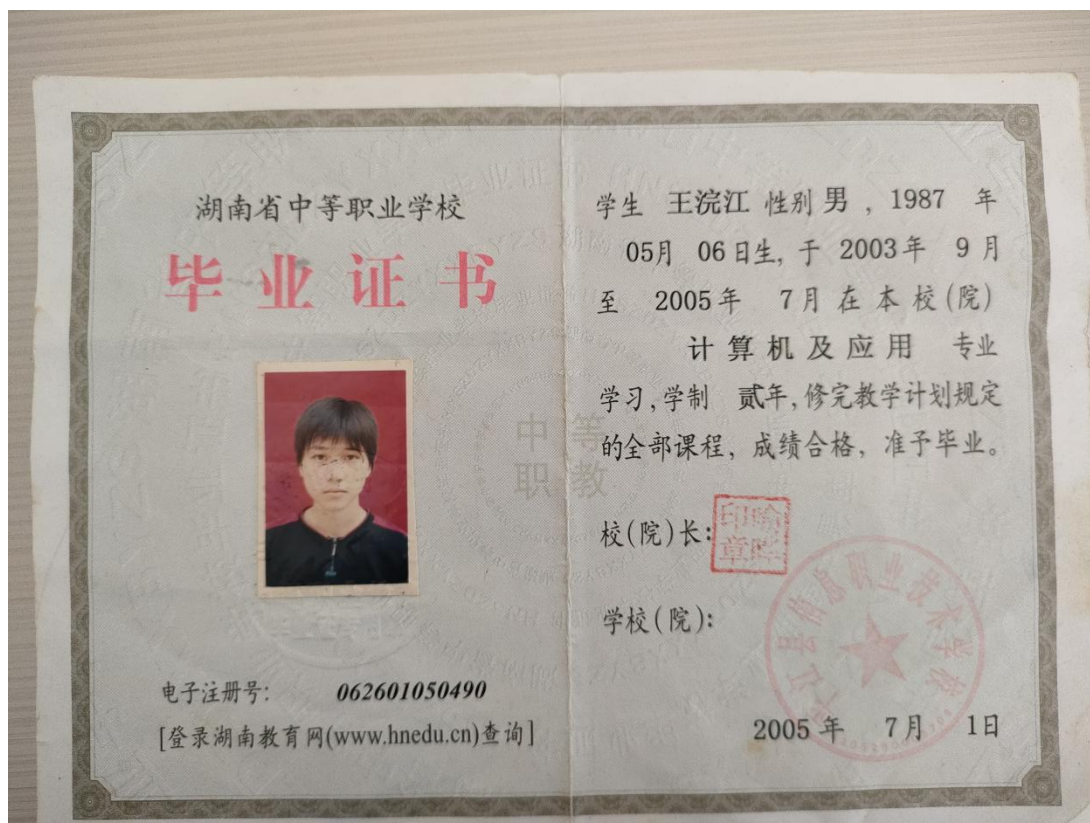 湖南省中等职业学校
毕业证书
电子注册号: 062601050490
[登录湖南教育网(www.hnedu.cn)查询]
中等
职教
学生 王浣江 性别 男 , 1987 年
05月 06日生, 于 2003年 9月
至 2005年 7月在本校(院)
计算机及应用 专业
学习,学制 贰年,修完教学计划规定
的全部课程, 成绩合格, 准予毕业。
校(院)长:
印章
学校(院):
平江县信息职业技术学校
2005年 7月 1日